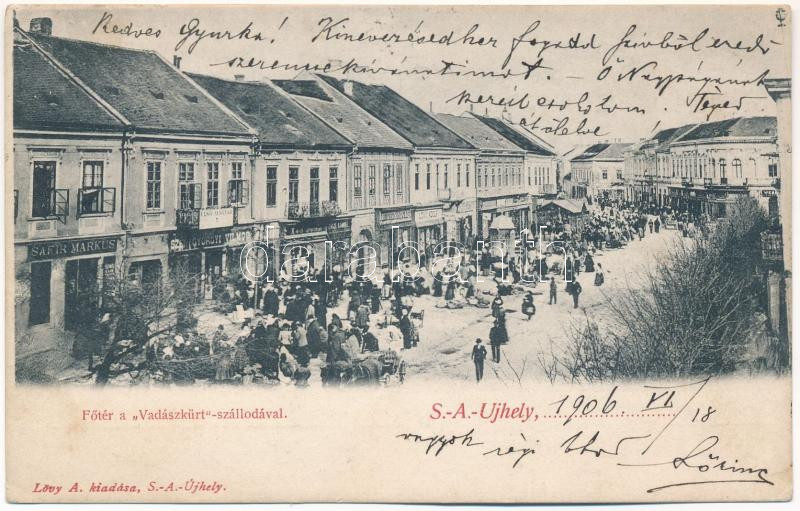 Kedves Gyurka! Kinevezésedhez fogadd szívből eredő
szerencsekívánatimot. – Ő Nagyságának
kezeit csókolom. Téged
ölelve
SAFIR MÁRKUS
darabanth
Főtér a „Vadászkürt"-szállodával.
S.-A.-Ujhely, 1906. VI/18
vagyok régi
Lőrinc
Lövy A. kiadása, S.-A.-Ujhely.